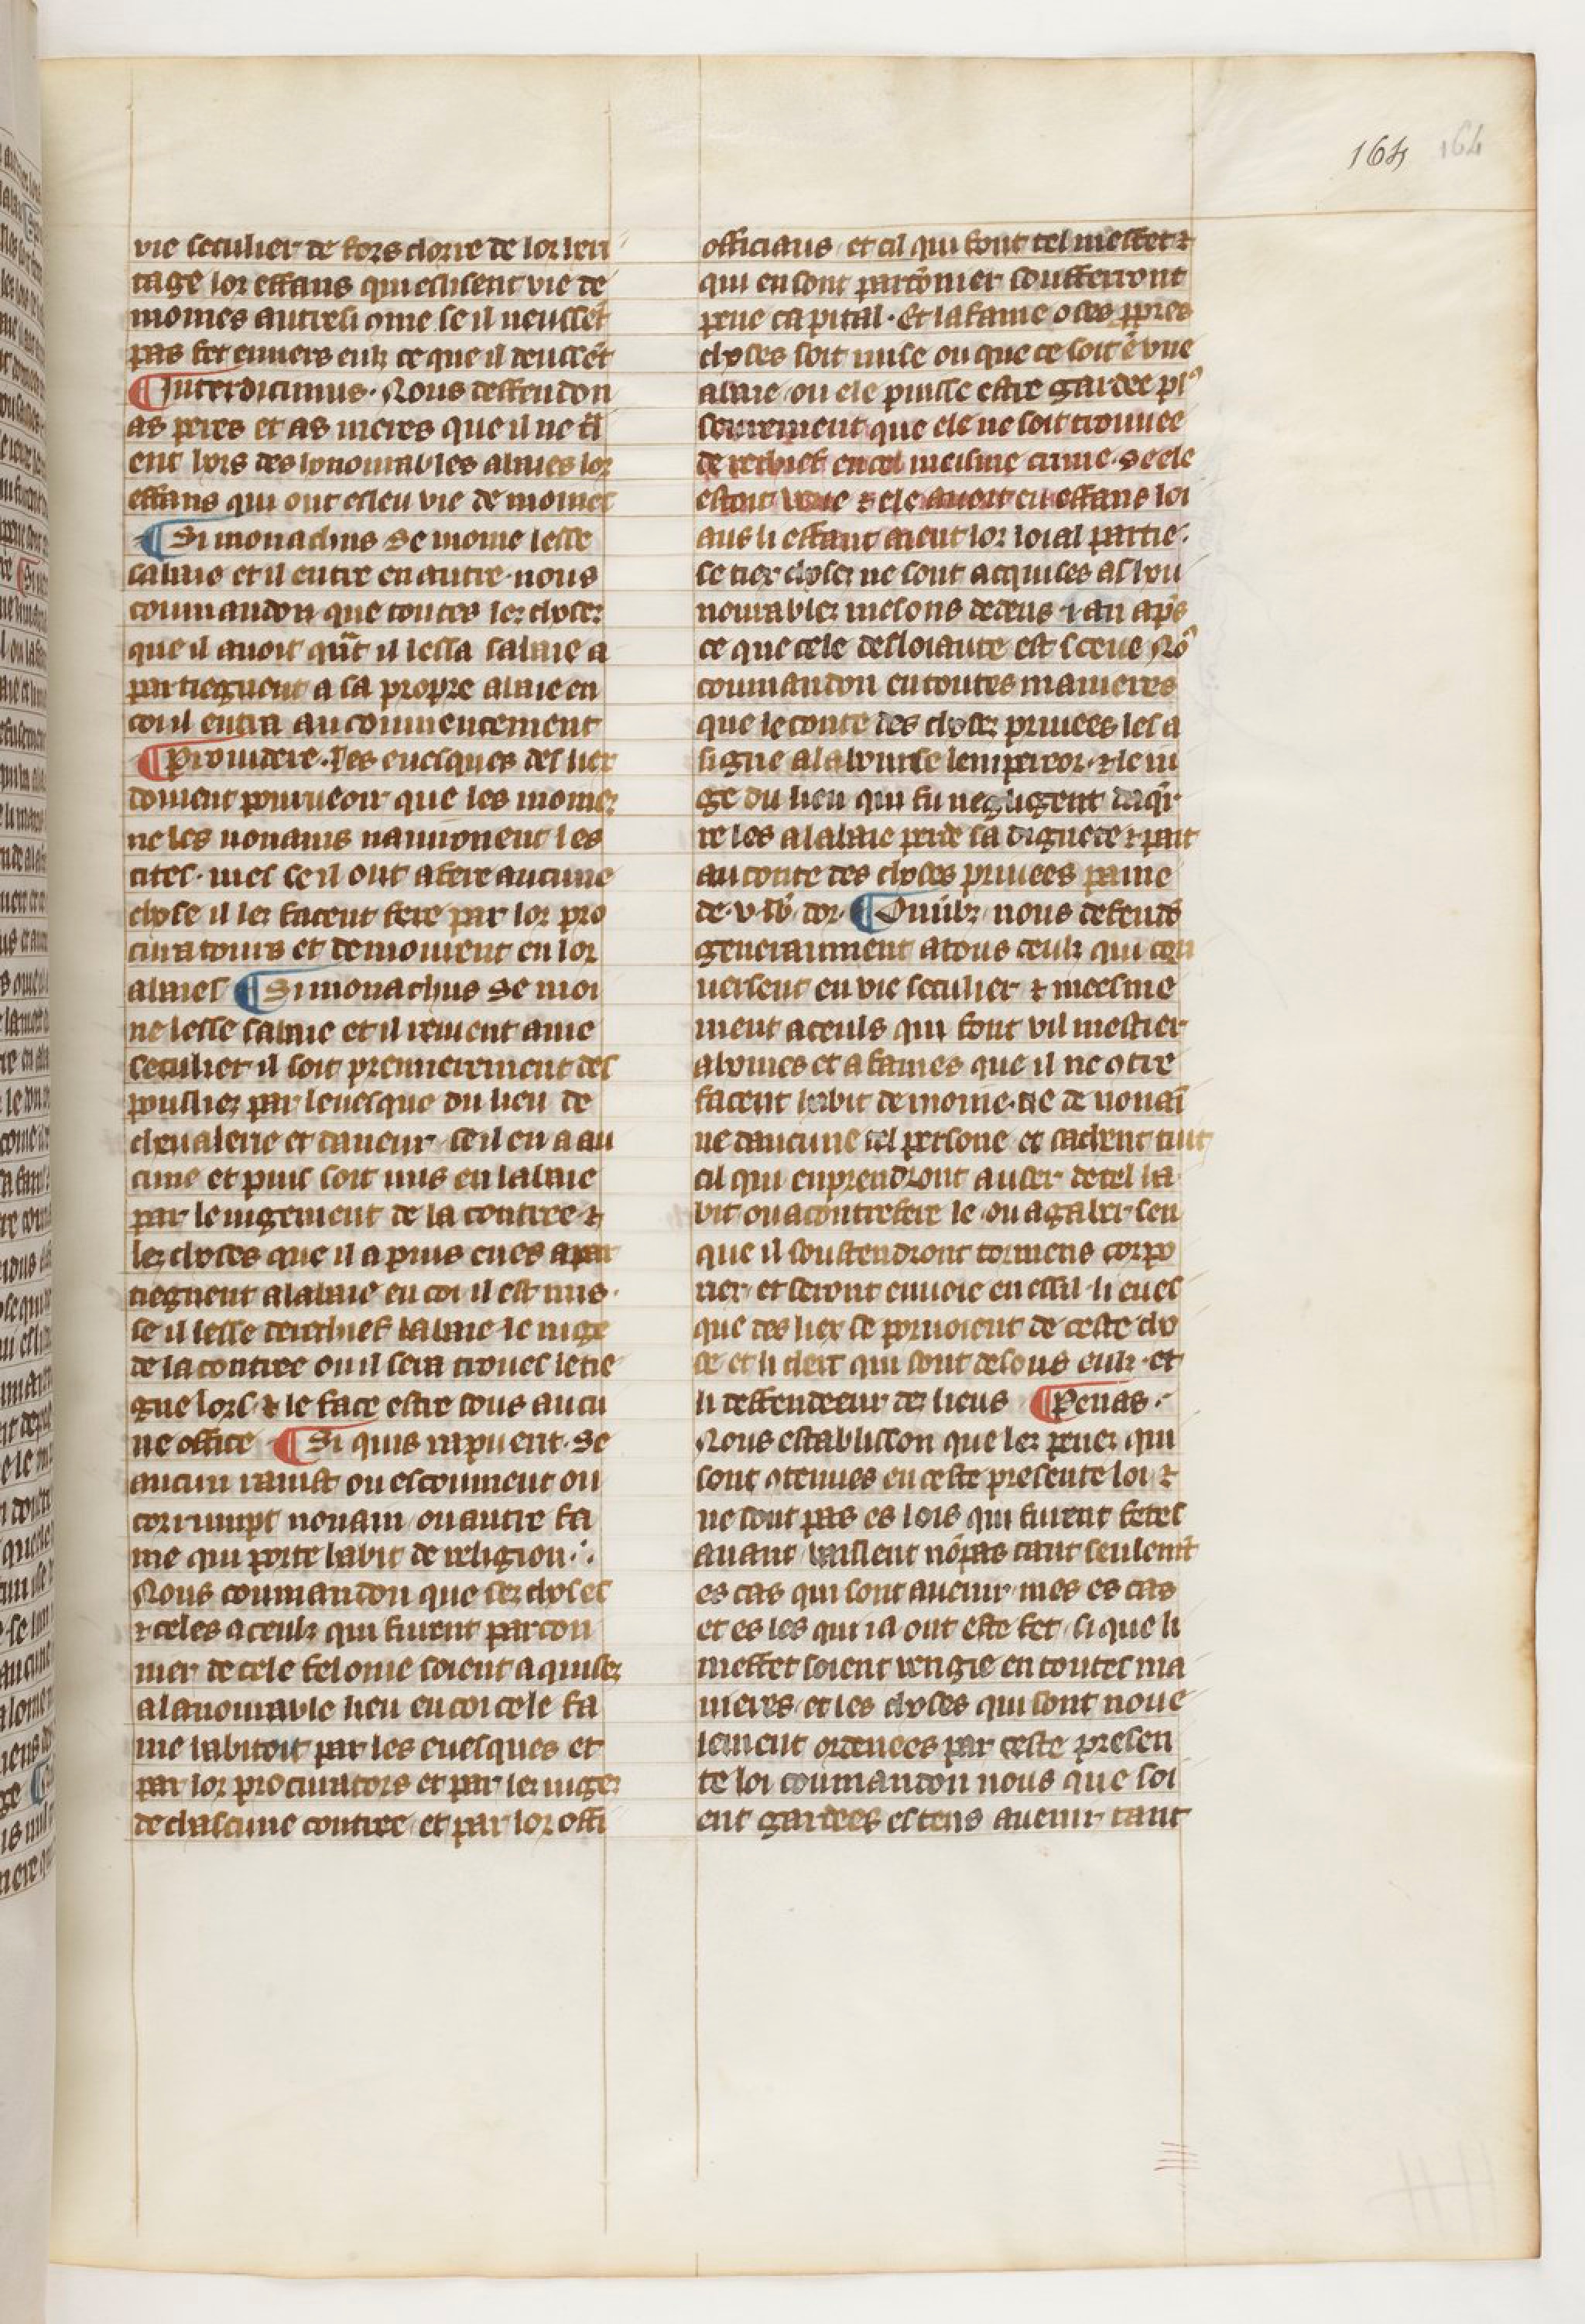 164 164
vie seculier de fors clorre de lor heri
tage lor effans qui eslisent vie de
moines autresi ɔme se il neussẽt
pas fet envers eulz ce que il deussẽt
¶ Interdicimus. Nous deffendon
as peres et as meres que il ne ti
ent hors des honourables abaies lor
effans qui ont esleu vie de moines
¶ Si monachus Se moine lesse
sabaie et il entre en autre nous
coumandon que toutes lez chosez
que il avoit qũt il lessa sabaie a
partiegnent a la propre abaie en
coi il entra au coumencement
¶ Providere. Les evesques des liex
doivent pourveoir que les moinez
ne les nonains navironent les
cites. mes se il ont afere aucune
chose il lez facent fere par lor pro
curatours et demourent en lor
abaies ¶ Si monachus Se moi
ne lesse sabaie et il revient a vie
seculier il soit premierement des
pouilliez par levesque du lieu de
chevalerie et daveir se il en a au
cune et puis soit mis en labaie
par le iugement de la contree ⁊
lez choses que il a puis eues apar
tiegnent a labaie en coi il est mis.
se il lesse derechief labaie le iuge
de la contree ou il sera troves le tie
gne lors ⁊ le face estre sous aucu
ne office ¶ Si quis rapuerit. Se
aucun ravist ou escoument ou
corrumpt nonain ou autre fa
me qui porte labit de religion.
Nous coumandon que sez choses
⁊ celes a ceulz qui furent parcon
nier de cele felonie soient aquisez
a lanourable lieu en coi cele fa
me habitoit par les evesques et
par lor procurators et par lez iugez
de chascune contree et par lor offi
officiaus et cil qui font tel meffet ⁊
qui en sont parcõnier soufferront
peine capital. Et la fame o ses ꝓpres
choses soit mise ou que ce soit ẽ une
abaie ou ele puisse estre gardee plꝰ
seurement que ele ne soit trouvee
de rechief en cel meisme crime. Se ele
estoit veue ⁊ ele avoit eu effans loi
aus li effant aient lor loial partie.
se tiex choses ne sont acquises as hon
nourablez mesons dedens ı an apẽs
ce que cele desloiaute est sceue Nꝰ
coumandon en toutes manieres
que le conte des chosez privees les a
signe a la bourse lemperor. ⁊ le iu
ge du lieu qui fu negligent daqir
re les a labaie perde sa dignete ⁊ pait
au conte des choses privees paine
de .v. lb̃. dor. ¶ Om̃ibꝫ nous defends
generaument a tous ceulz qui con
versent en vie seculier ⁊ meesme
ment a ceuls qui font vil mestier
a homes et a fames que il ne ɔtre
facent habit de moine. ne de nonaĩ
ne daucune tel persone et sachent tuit
cil qui enprendront a user de tel ha
bit ou a contrefere le ou a gaber sen
que il soustendront tormens corpo
riex et seront envoie en essil li eves
que des liex se porvoient de ceste cho
se et li clerc qui sont desous eulz et
li deffendeeur dez lieus ¶ Penas.
Nous establisson que lez penez qui
sont ɔtenues en ceste presente loi ⁊
ne sont pas es lois qui furent fetes
avant vaillent nõ pas tant seulemt
es cas qui sont avenir mes es cas
et es les qui ia ont este fet si que li
meffet soient vengie en toutes ma
nieres et les choses qui sont nove
lement ordenees par ceste presen
te loi coumandon nous que soi
ent gardees es tens avenir tant